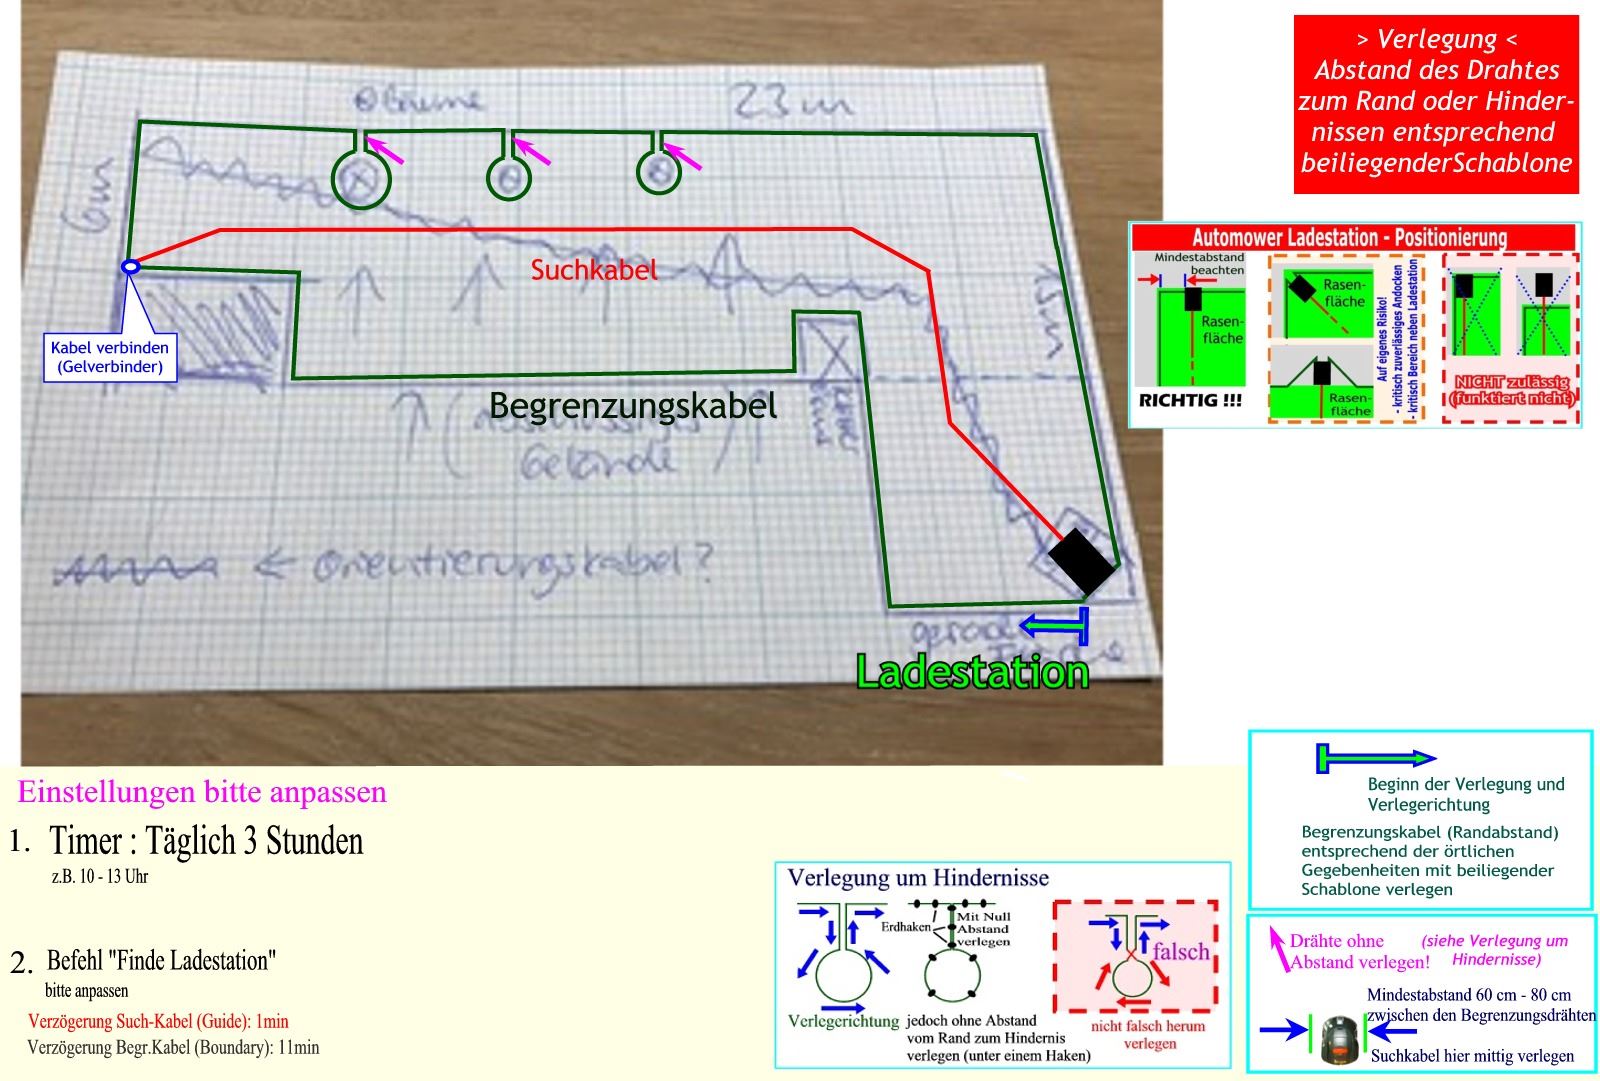 > Verlegung <
Abstand des Drahtes
zum Rand oder Hinder-
nissen entsprechend
beiliegenderSchablone
Bäume
23m
6m
Suchkabel
Kabel verbinden
(Gelverbinder)
Begrenzungskabel
Gelände
← Orientierungskabel?
gerade
Ladestation
Automower Ladestation - Positionierung
Mindestabstand
beachten
Rasen-
fläche
RICHTIG !!!
Rasen-
fläche
Rasen-
fläche
Auf eigenes Risiko!
- kritisch zuverlässiges Andocken
- kritisch Bereich neben Ladestation
NICHT zulässig
(funktiert nicht)
Einstellungen bitte anpassen
1. Timer : Täglich 3 Stunden
z.B. 10 - 13 Uhr
2. Befehl "Finde Ladestation"
bitte anpassen
Verzögerung Such-Kabel (Guide): 1min
Verzögerung Begr.Kabel (Boundary): 11min
Verlegung um Hindernisse
Erdhaken
Mit Null
Abstand
verlegen
falsch
Verlegerichtung
jedoch ohne Abstand
vom Rand zum Hindernis
verlegen (unter einem Haken)
nicht falsch herum
verlegen
Beginn der Verlegung und
Verlegerichtung
Begrenzungskabel (Randabstand)
entsprechend der örtlichen
Gegebenheiten mit beiliegender
Schablone verlegen
Drähte ohne
Abstand verlegen!
(siehe Verlegung um
Hindernisse)
Mindestabstand 60 cm - 80 cm
zwischen den Begrenzungsdrähten
Suchkabel hier mittig verlegen